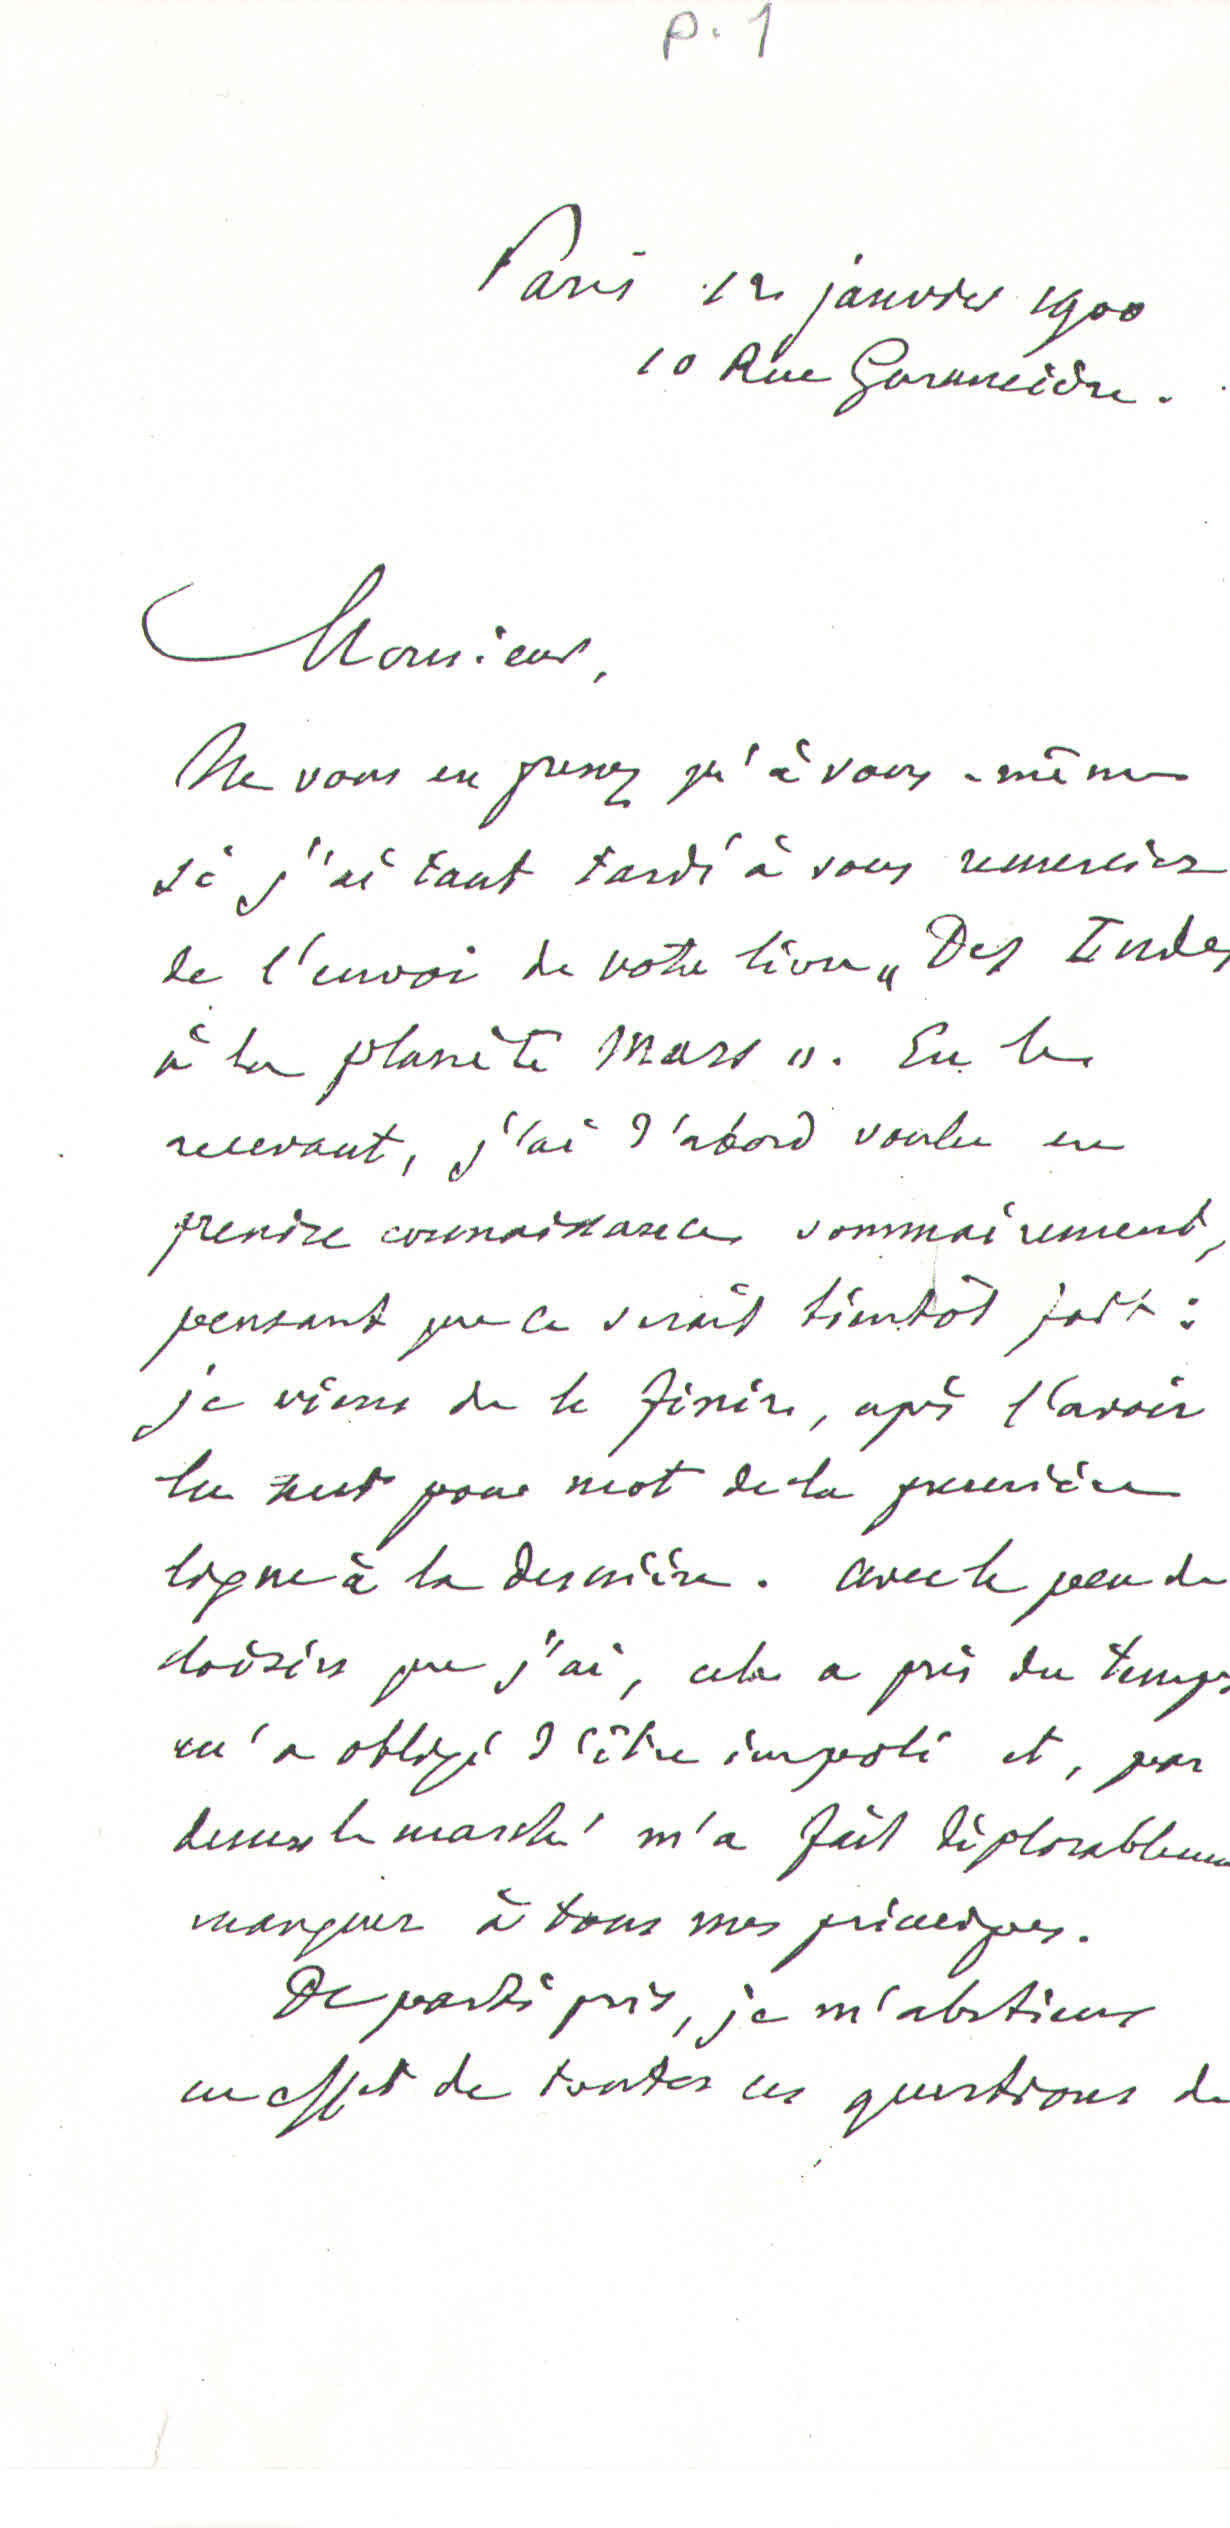 p. 1
Paris 12 janvier 1900
10 Rue Garancière.
Monsieur,
Ne vous en prenez qu'à vous-même
si j'ai tant tardé à vous remercier
de l'envoi de votre livre „ Des Indes
à la planète Mars ". En le
recevant, j'ai d'abord voulu en
prendre connaissance sommairement,
pensant que ce serait bientôt fait :
je viens de le finir, après l'avoir
lu mot pour mot de la première
ligne à la dernière. Avec le peu de
loisirs que j'ai, cela a pris du temps
m'a obligé d'être impoli et, par
dessus le marché m'a fait déplorablement
manquer à tous mes principes.
De parti pris, je m'abstiens
en effet de toutes ces questions de